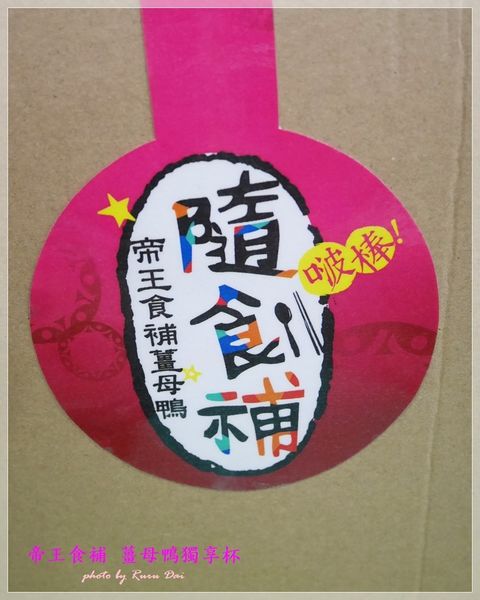 隨食補
帝王食補薑母鴨
啵棒!
帝王食補 薑母鴨獨享杯
photo by Ruru Dai